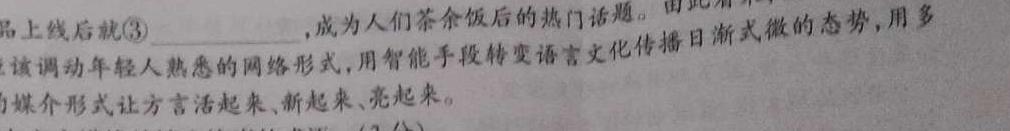 品上线后就③________,成为人们茶余饭后的热门话题。由此看
该调动年轻人熟悉的网络形式,用智能手段转变语言文化传播日渐式微的态势,用多
媒介形式让方言活起来、新起来、亮起来。